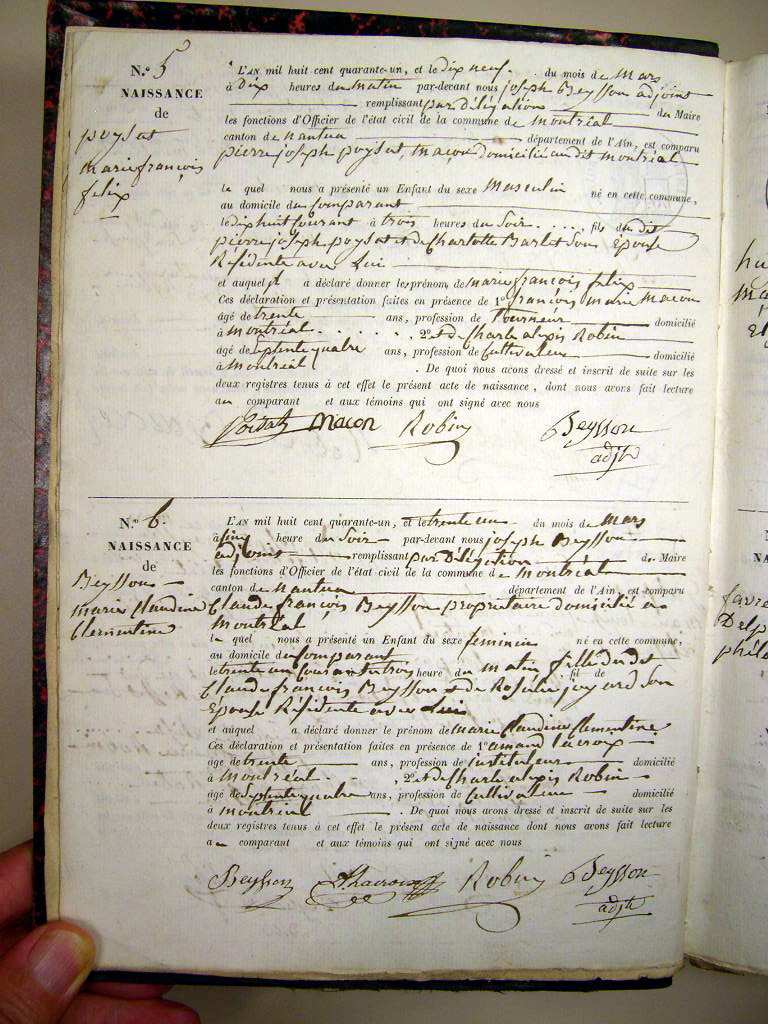 N.º 5
NAISSANCE
de
poysat
marie françois
felix
L'AN mil huit cent quarante-un, et le dix neuf . . du mois de Mars
à Dix heures du matin par-devant nous joseph Beysson adjoint
remplissant par Délégation du Maire
les fonctions d'Officier de l'état civil de la commune de Montréal
canton de nantua département de l'Ain, est comparu
pierre joseph poysat, macon domicilié au dit montréal
le quel nous a présenté un Enfant du sexe Masculin né en cette commune,
au domicile du Comparant
le dix huit Courant à trois heures du Soir . . . . fils du dit
pierre joseph poysat et de Charlotte Barlet Son Epouse
Résidente avec Lui
et auquel il a déclaré donner le prénom de marie françois felix
Ces déclaration et présentation faites en présence de 1º françois marie Macon
âgé de trente ans, profession de Tourneur domicilié
à Montréal . . . . . . 2º et de Charle alexis Robin
âgé de Septente quatre ans, profession de Cultivateur domicilié
à Montréal . De quoi nous avons dressé et inscrit de suite sur les
deux registres tenus à cet effet le présent acte de naissance, dont nous avons fait lecture
au comparant et aux témoins qui ont signé avec nous
macon Robin Beysson
adjt
N.º 6.
NAISSANCE
de
Beysson
marie Claudine
Clementine
L'AN mil huit cent quarante-un, et le trente un du mois de Mars
à Cinq heure du Soir par-devant nous joseph Beysson
adjoint remplissant par Délégation du Maire
les fonctions d'Officier de l'état civil de la commune de Montréal
canton de Nantua département de l'Ain, est comparu
Claude françois Beysson propriétaire domicilié a
Montréal
le quel nous a présenté un Enfant du sexe feminin né en cette commune,
au domicile du Comparant
le trente un Courant à trois heure du Matin fille du dit fil de
Claude françois Beysson et de Rosalie joyard Son
Epouse Résidente avec Lui
et auquel a déclaré donner le prénom de marie Claudine Clementine
Ces déclaration et présentation faites en présence de 1º amand Lacroix
âgé de trente ans, profession de instituteur domicilié
à Montréal . . , 2º et de Charle alexis Robin
âgé de septente quatre ans, profession de Cultivateur domicilié
à montréal . De quoi nous avons dressé et inscrit de suite sur les
deux registres tenus à cet effet le présent acte de naissance dont nous avons fait lecture
au comparant et aux témoins qui ont signé avec nous
Beysson Lacroix Robin Beysson
adjt